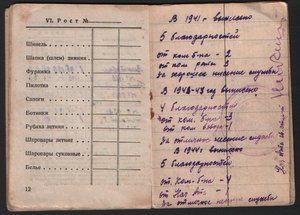 VI. Рост №
Шинель
Шапка (шлем) зимняя
Фуражка
Пилотка
Сапоги
Ботинки
Рубаха летняя
Шаровары летние
Шаровары суконные
Белье
12
В 1941 г. вынесено
5 благодарностей
от ком. б-на - 2
от ком. роты - 3
за хорошее несение службы
В 1942-43 год вынесено
4 благодарностей
от ком. б-на
от ком взвода
за отличное несение службы
В 1944 г. вынесено
5 благодарностей
от Ком. б-на - 4
от Нач.
за отличное несение службы